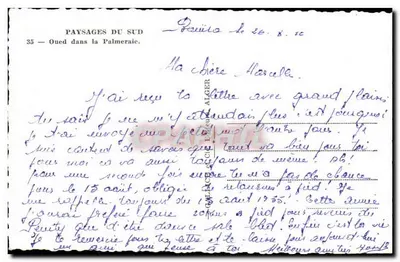 PAYSAGES DU SUD
35 — Oued dans la Palmeraie.
le 20. 8.
Ma chère Marcelle
J'ai reçu ta lettre avec grand plaisir
tu sais je ne m'y attendais plus c'est pourquoi
je t'ai envoyé une l'autre jour. Je
suis content de savoir que tout va bien pour toi
pour moi ça va aussi toujours de même! 
pour une seconde fois encore tu n'a pas de chance
pour le 15 août, obligée de retourner à pied! Je
me rappelle toujours du 15 août 1955. Cette année
j'aurais préféré faire à pied pour revenir de
que d'être dans sale bled. Enfin c'est la vie
Je te remercie pour ta lettre et te laisse pour aujourd'hui
un ami qui pense à toi Meilleurs amitiés
ALGER